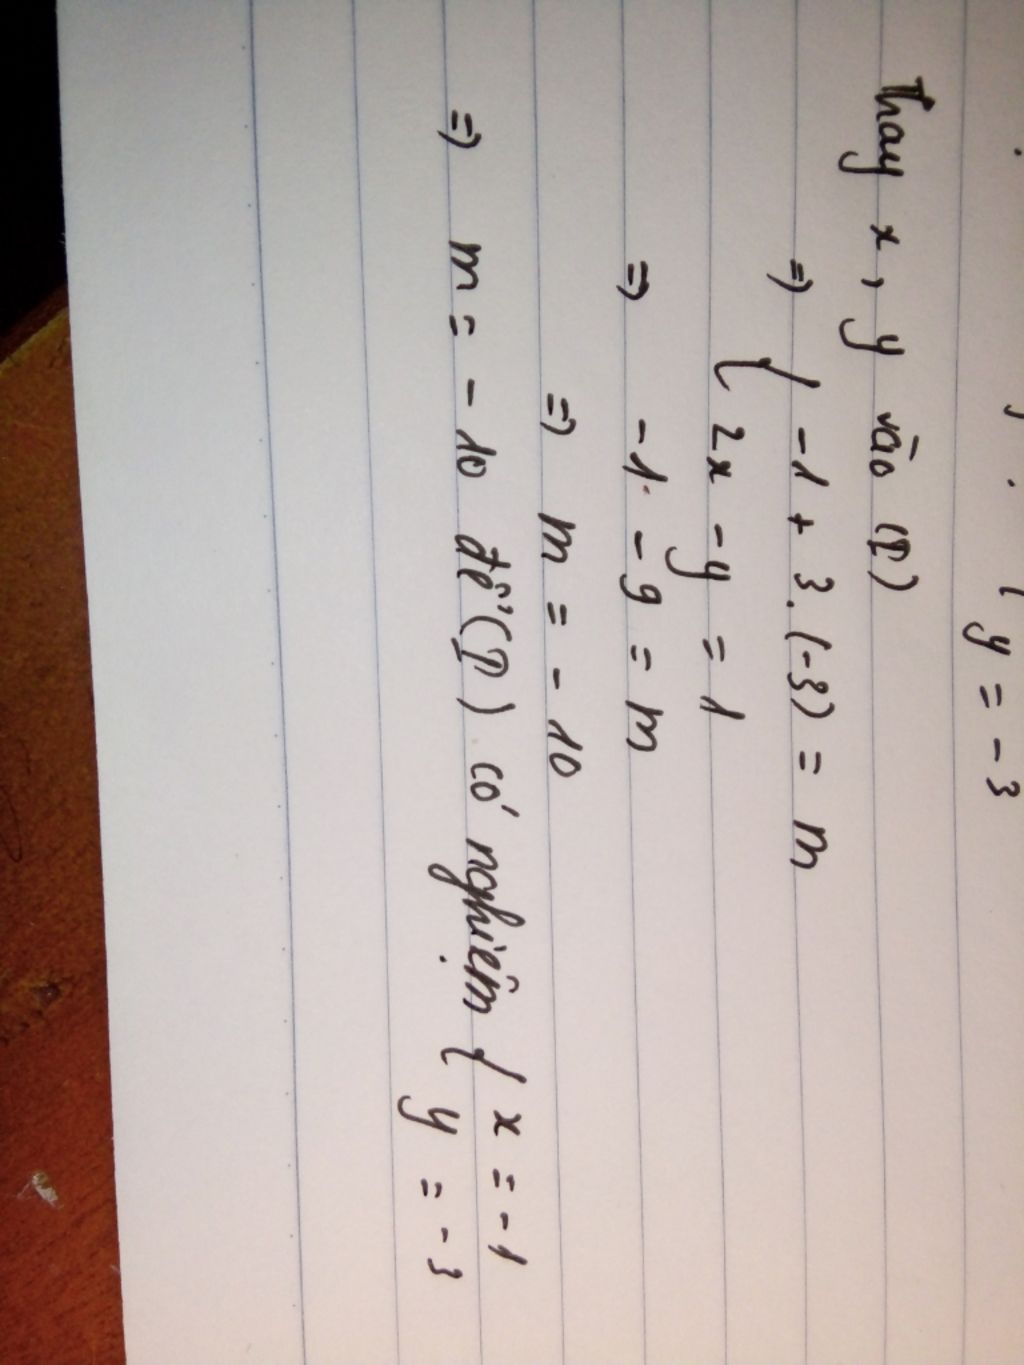 y = -3
Thay x, y vào (I)
=> { -1 + 3.(-3) = m
2x - y = 1
=> -1 - 9 = m
=> m = - 10
=> m = - 10 để (I) có nghiệm { x = -1
y = -3